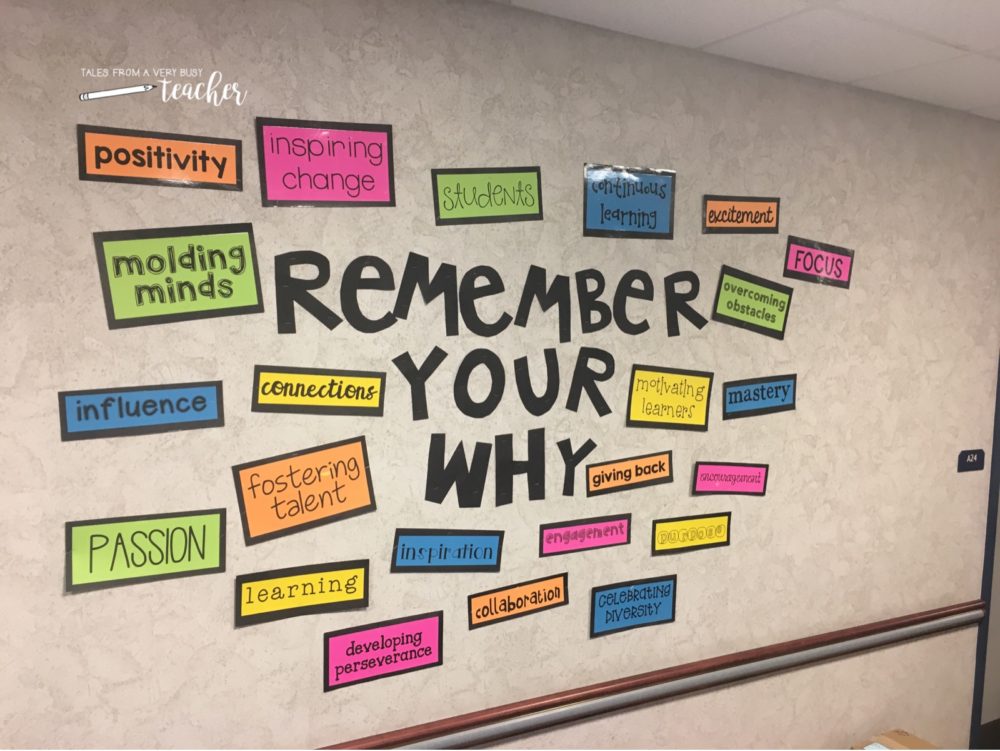 TALES FROM A VERY BUSY
teacher
positivity
inspiring
change
students
continuous
learning
excitement
FOCUS
molding
minds
REMEMBER
YOUR
WHY
overcoming
obstacles
influence
connections
motivating
learners
mastery
fostering
talent
giving back
encouragement
PASSION
inspiration
engagement
purpose
learning
collaboration
CELEBRATING
DIVERSITY
developing
perseverance
A24